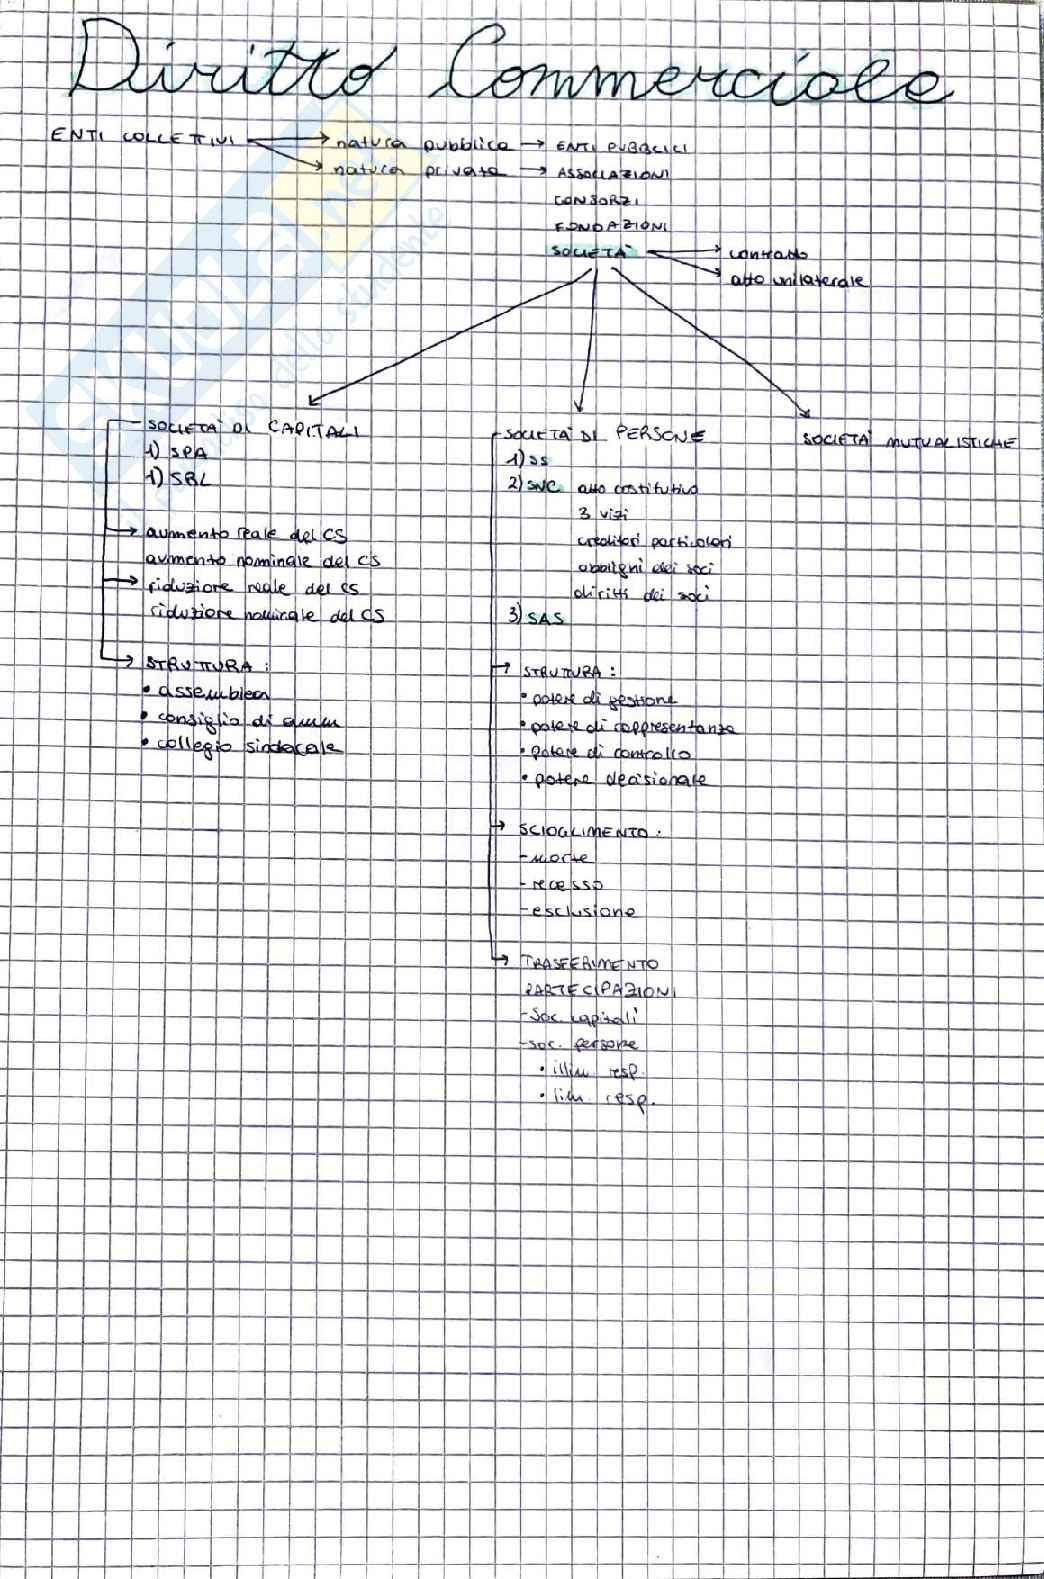 Diritto Commerciale
ENTI COLLETTIVI natura pubblica → ENTI PUBBLICI
natura privata → ASSOCIAZIONI
CONSORZI
FONDAZIONI
SOCIETÀ contratto
atto unilaterale
SOCIETÀ DI CAPITALI
1) SPA
1) SRL
aumento reale del CS
aumento nominale del CS
riduzione reale del CS
riduzione nominale del CS
STRUTTURA:
• assemblea
• consiglio di amm
• collegio sindacale
SOCIETÀ DI PERSONE
1) SS
2) SNC atto costitutivo
3 vizi
creditori particolari
obblighi dei soci
diritti dei soci
3) SAS
STRUTURA:
• potere di gestione
• potere di rappresentanza
• potere di controllo
• potere decisionale
SCIOGLIMENTO:
- morte
- recesso
- esclusione
TRASFERIMENTO
PARTECIPAZIONI
- Soc. capitali
- soc. persone
• illim. resp.
• lim. resp.
SOCIETÀ MUTUALISTICHE
Skuola.net
dello studente